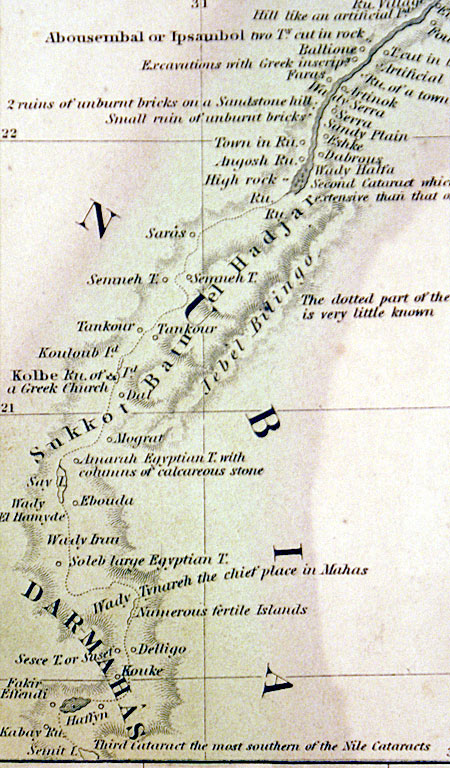 31
Ru. Village
Hill like an artificial
Abousembal or Ipsambol two T.s cut in rock
Ballione
T. cut in
Excavations with Greek inscrips
Artificial
Faras
Ru. of a town
Artinok
Wady Serra
2 ruins of unburnt bricks on a Sandstone hill
Serra
Small ruin of unburnt bricks
Sandy Plain
22
Eshke
Town in Ru.
Dabrous
Angosh Ru.
Wady Halfa
High rock
Second Cataract which
Ru.
extensive than that
Ru.
N U B I A
Sukkot Batn el Hadjar
Jebel Bilingo
Saràs
Semneh T.
Semneh T.
The dotted part of the
is very little known
Tankour
Tankour
Kouloub I.d
Kolbe Ru. of
a Greek Church
I.d
Dal
21
Mograt
Amarah Egyptian T. with
columns of calcareous stone
Say I.
Wady
El Hamyde
Ebouda
Wady Irau
Soleb large Egyptian T.
Wady Tynareh the chief place in Mahas
DARMAHÁS
Numerous fertile Islands
Delligo
Sesce T. or Sasef
Kouke
Fakir
Effendi
Haffyn
Kabay Ru.
Semit I.
Third Cataract the most southern of the Nile Cataracts